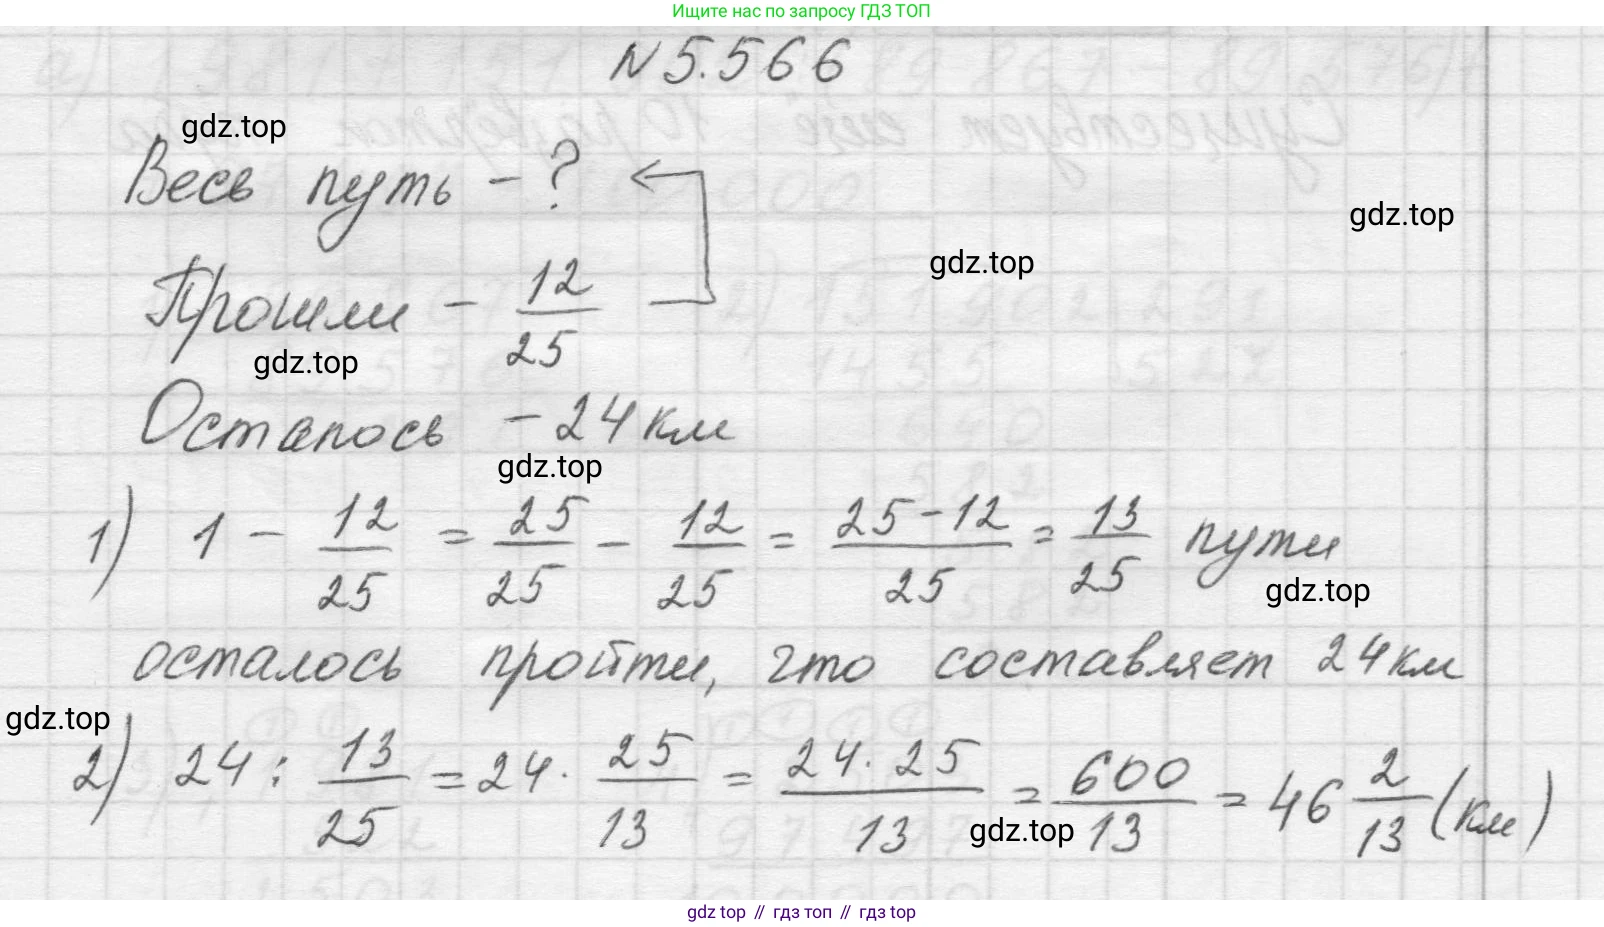 Ищите нас по запросу ГДЗ ТОП
N 5.566
gdz.top
Весь путь - ?
gdz.top
gdz.top
Прошли - 12/25
gdz.top
Осталось - 24 км
gdz.top
1) 1 - 12/25 = 25/25 - 12/25 = (25-12)/25 = 13/25 пути
gdz.top
осталось пройти, что составляет 24 км
gdz.top
2) 24 : 13/25 = 24 · 25/13 = (24 · 25)/13 = 600/13 = 46 2/13 (км)
gdz.top
gdz top // гдз топ // gdz top